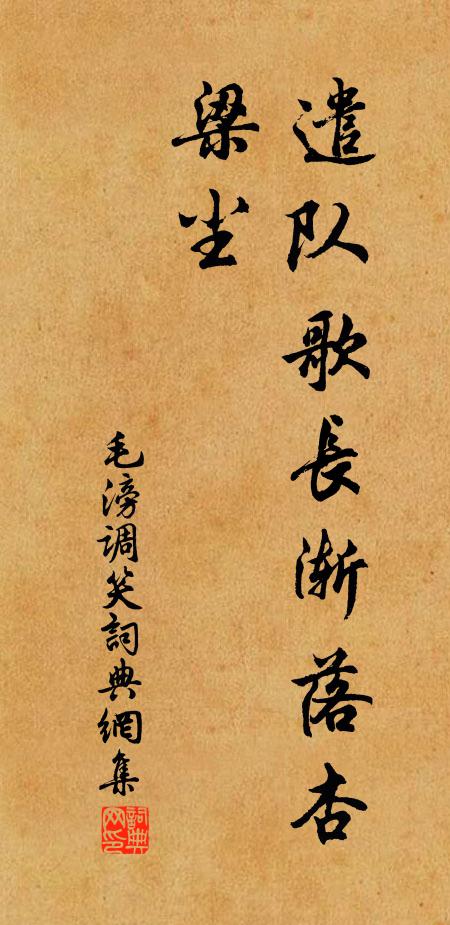 遣队歌長渐落杏
梁尘
毛滂调笑詞典網集
詞典
网印